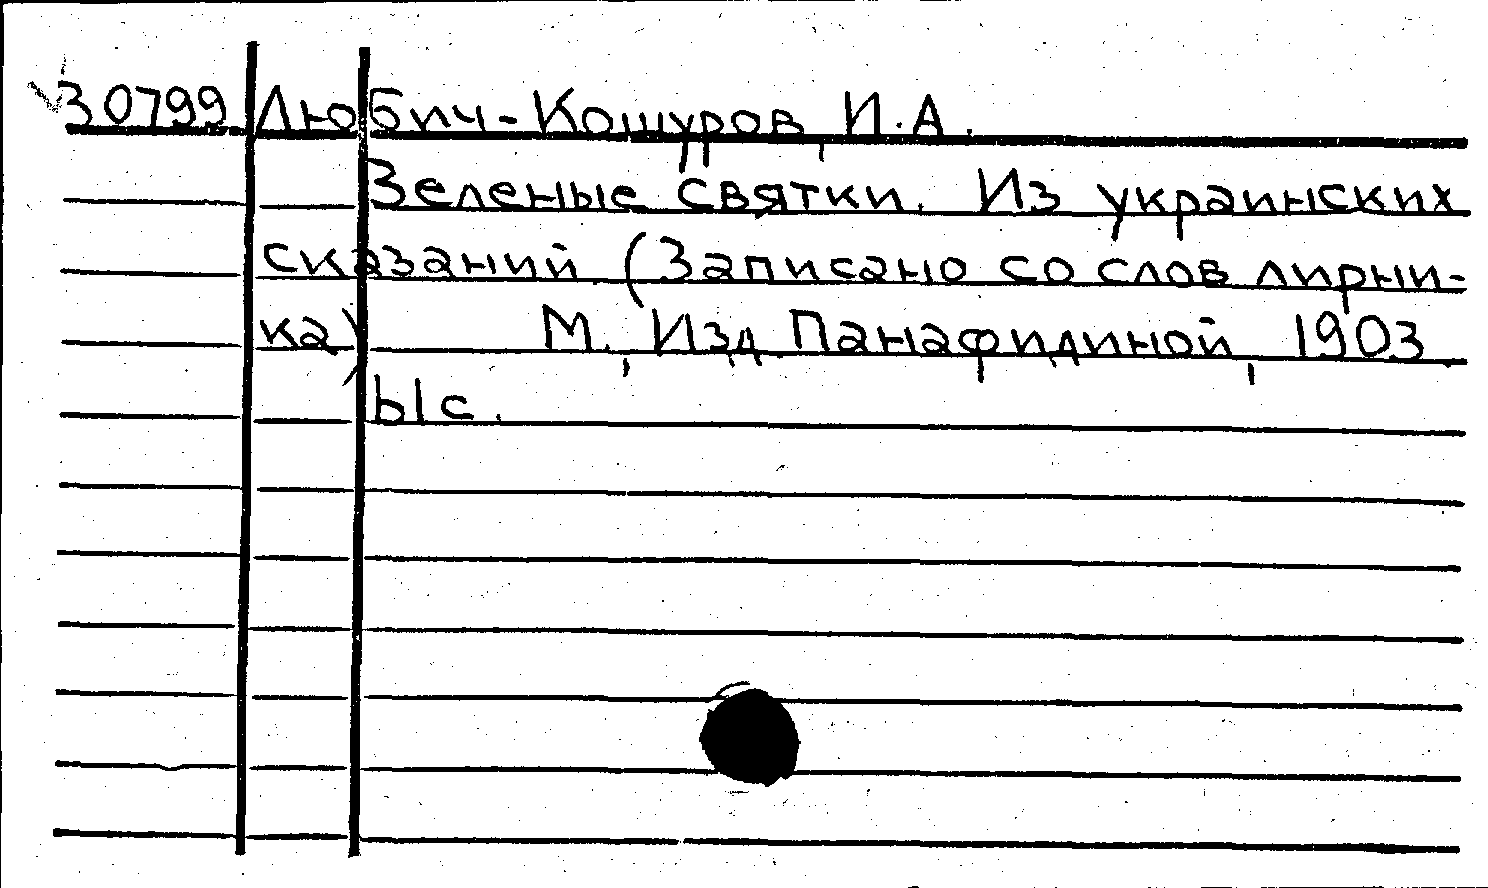 30799 Любич-Кошуров, И.А.
Зеленые святки. Из украинских
сказаний (Записано со слов лирни-
ка) М., Изд. Панафидиной, 1903.
61 с.